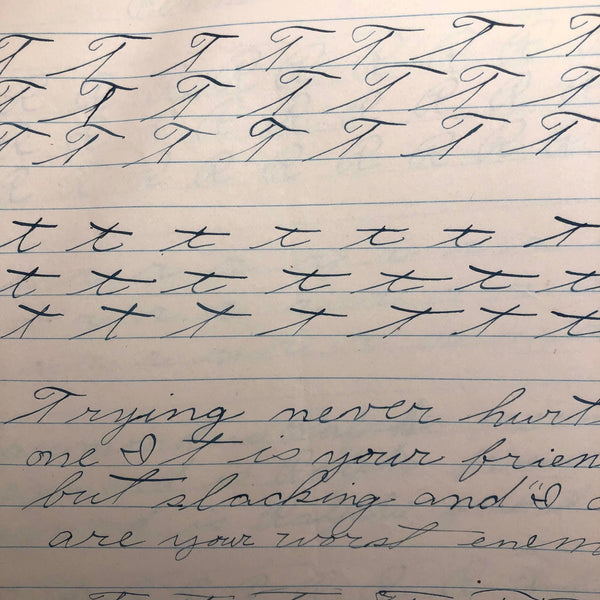 T T T T T T T
T T T T T T T
T T T T T T T
t t t t t t t
t t t t t t t
t t t t t t t
Trying never hurt
one It is your frien
but slacking and "I
are your worst enem